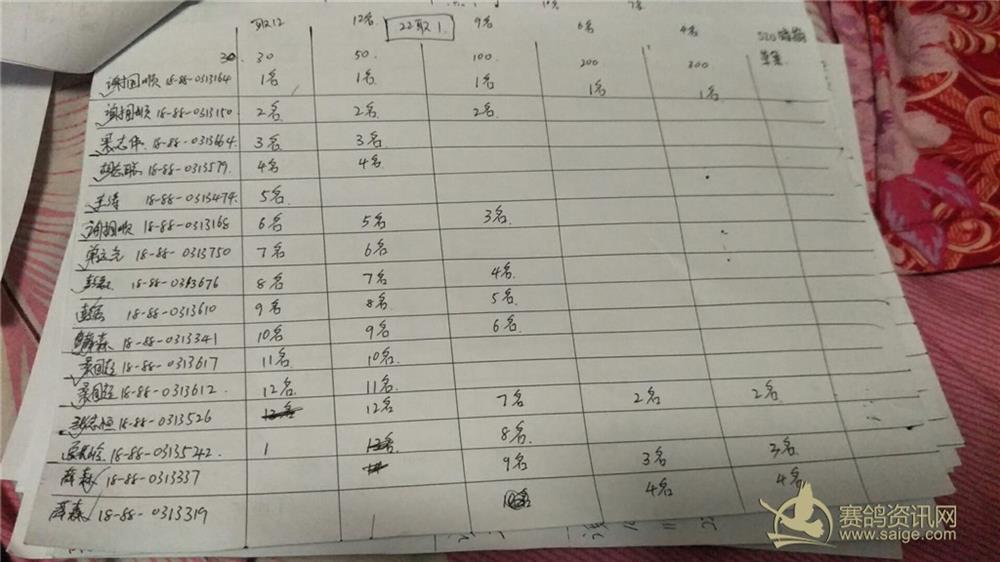 取12 12名 22取1 9名 6名 4名
30 30 50 100 200 300
谢相顺 18-88-0313164 1名 1名 1名 1名 1名
谢相顺 18-88-0313150 2名 2名 2名
18-88-0313664 3名 3名
18-88-0313579 4名 4名
王涛 18-88-0313474 5名
谢相顺 18-88-0313168 6名 5名 3名
18-88-0313750 7名 6名
18-88-0313676 8名 7名 4名
18-88-0313610 9名 8名 5名
18-88-0313341 10名 9名 6名
18-88-0313617 11名 10名
18-88-0313612 12名 11名
18-88-0313526 12名 7名 2名 2名
18-88-0313542 1 8名
薛森 18-88-0313337 9名 3名 3名
薛森 18-88-0313319 4名 4名
赛鸽资讯网
www.saige.com